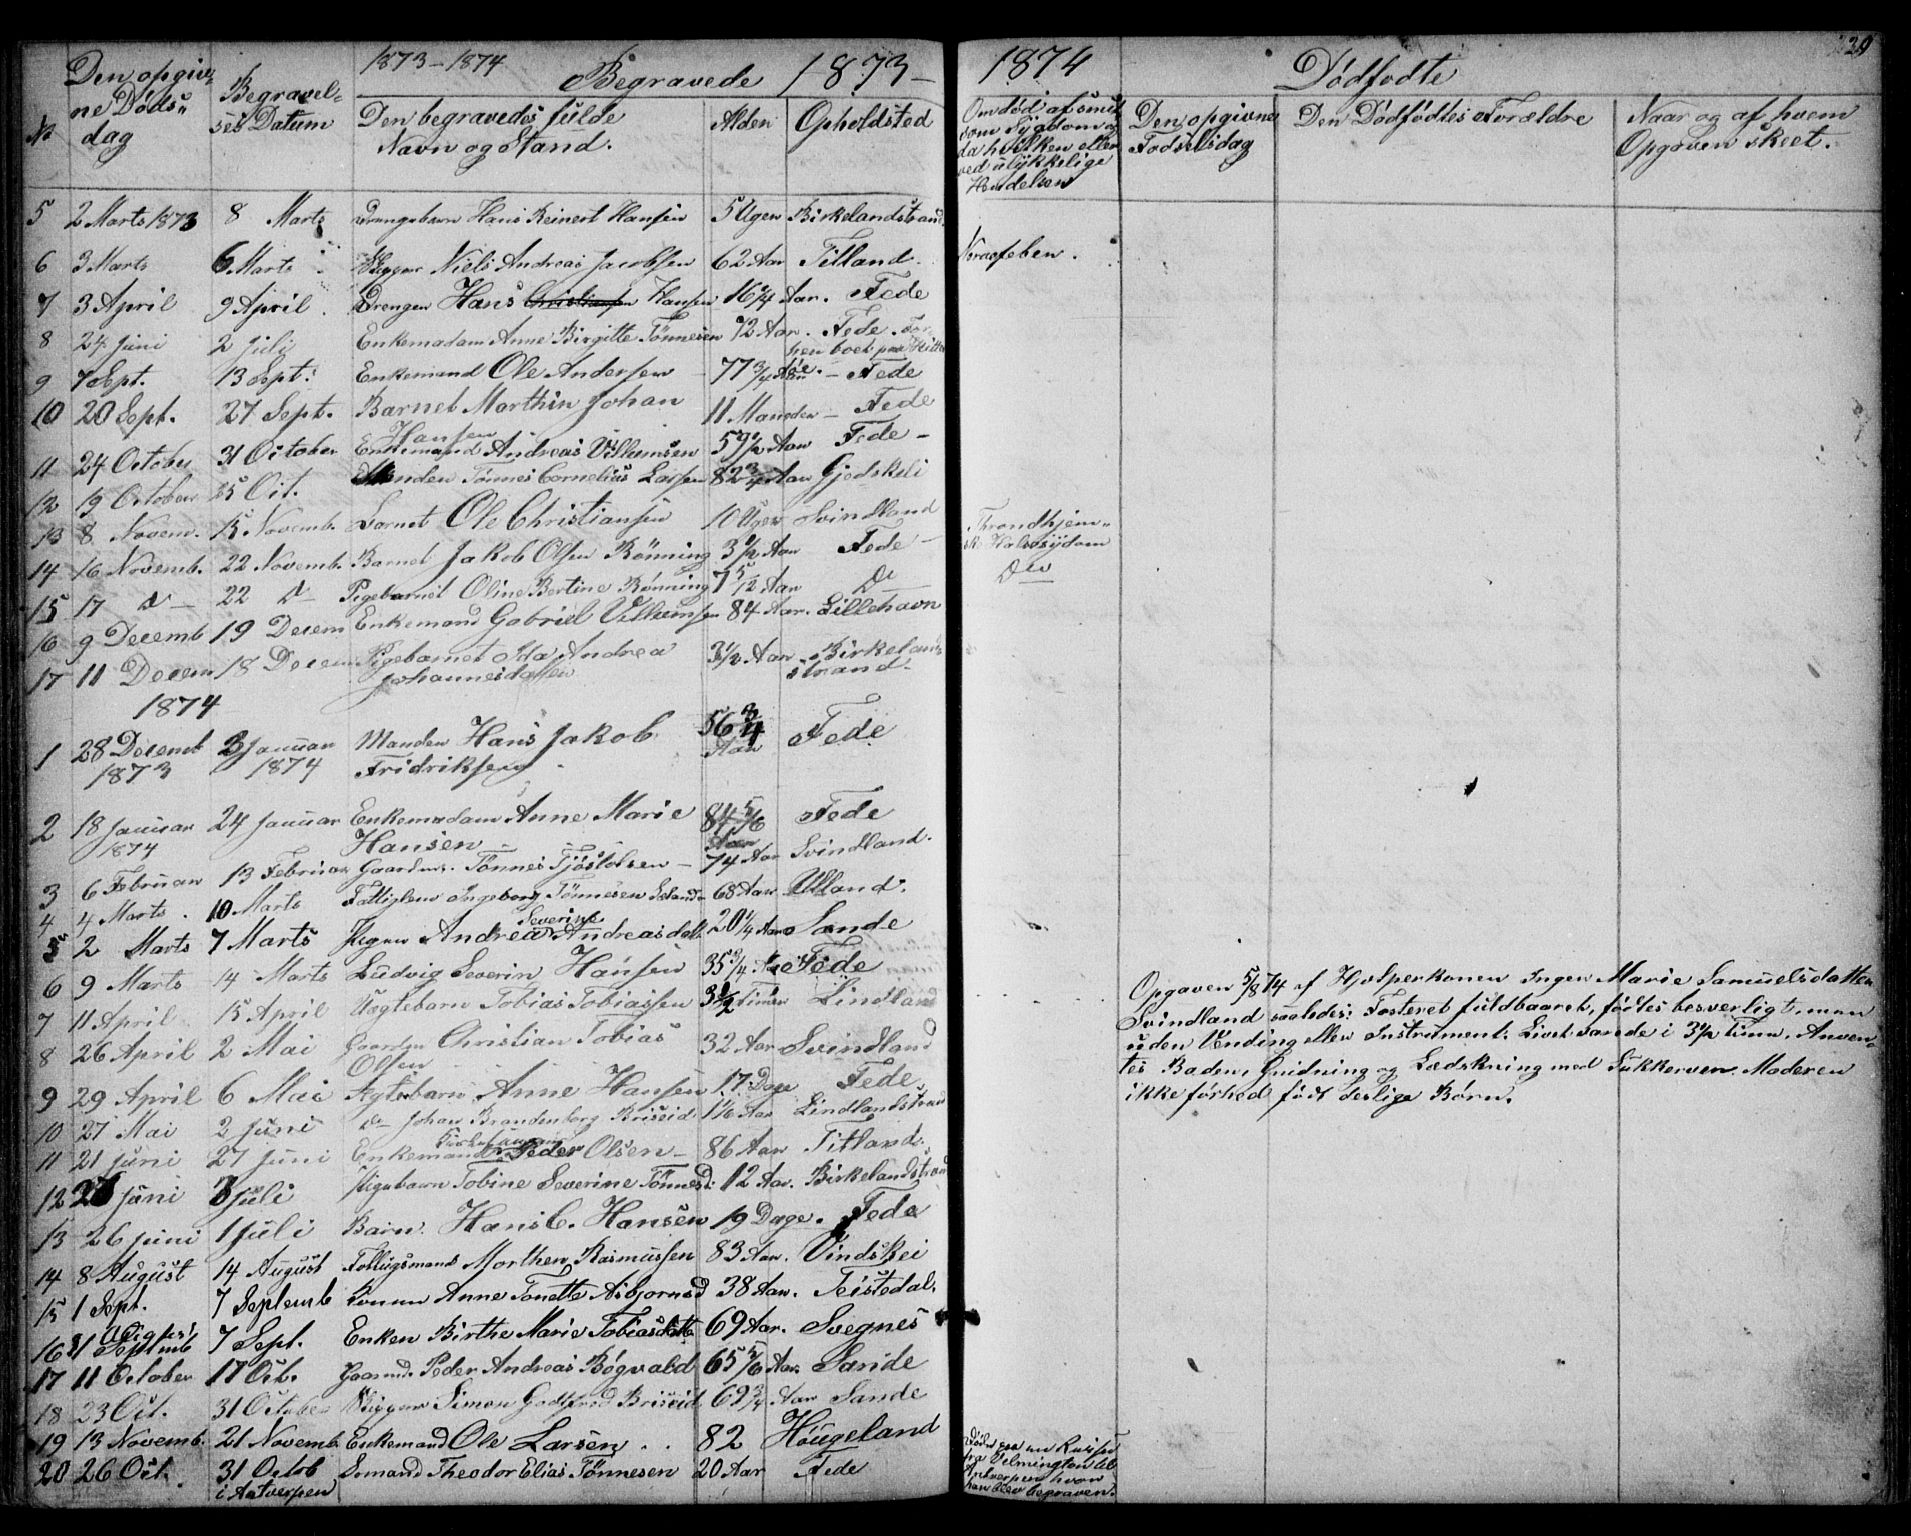 1873-1874 Begravede 1873-
№ Den opgivne Döds-dag Begravelses Datum Den begravedes fulde Navn og Stand. Alder Opholdsted
5 2 Marts 1873 8 Marts Drengebarn Hans Reinert Hansen 5 Uger Birkelandstrand
6 3 Marts 6 Marts Niels Andreas Jacobsen 62 Aar Titland.
7 3 April 9 April. Drengen Hans Christiansen Hansen 16 3/4 Aar. Fede
8 24 Juni 2 Juli Enkemadam Anne Birgitte Tönnesen 72 Aar. Fede.
9 7 Sept. 13 Sept. Enkemand Ole Andersen 77 3/4 Aar - Fede
10 20 Sept. 27 Sept. Barnet Marthin Johan 11 Maneder - Fede
Hansen
11 24 October 31 October Enkemand Andreas Vilhumsen 59 1/2 Aar Fede -
12 19 October 25 Oct. Manden Tönnes Cornelius Larsen 82 3/4 Aar Gjedskeli
13 8 Novem. 15 Novemb. Barnet Ole Christiansen 10 Uger Svindland
14 16 Novemb. 22 Novemb. Barnet Jakob Olsen Rönning 3 1/2 Aar Fede -
15 17 D - 22 D - Pigebarnet Oline Bertine Rönning 7 5/12 Aar Do
16 9 Decemb 19 Decem Enkemand Gabriel Vilhumsen 84 Aar. Lillehavn
17 11 Decem 18 Decem Pigebarnet Ida Andrea 3 1/2 Aar Birkeland-
Johannesdatter strand -
1874
1 28 Decemb 3 Januar Manden Hans Jakob 56 3/4 Aar Fede
1873 1874 Fridriksen
2 18 Januar 24 Januar Enkemadam Anne Marie 84 5/6 Aar Fede
1874 Hansen
3 6 Februar 13 Februar Gaardm. Tönnes Tjöstolsen - 74 Aar Svindland.
4 4 Marts. 10 Marts Fattiglem Ingeborg Tönnesen 68 Aar Ulland.
5 2 Marts 7 Marts Pigen Andrea Severine Andreasdatt. 20 1/4 Aar Sande
6 9 Marts 14 Marts Ludvig Severin Hansen 35 3/4 Aar Fede
7 11 April 15 April Uægtebarn Tobias Tobiassen 3 1/2 Timer Lindland
8 26 April 2 Mai Gaardm Christian Tobias 32 Aar Svindland
Olsen
9 29 April 6 Mai Ægtebarn Anne Hansen 17 Dage Fede
10 27 Mai 2 Juni Do Johan Brandenborg Briseid 1 1/6 Aar Lindlandstrand
11 21 Juni 27 Juni Enkemand Peder Olsen - 86 Aar Titland.
12 27 Juni 3 Juli Pigebarn Tobine Severine Tönnesd. 12 Aar. Birkelandstrand
13 26 Juni 1 Juli Barn. Hans C. Hansen 19 Dage. Fede
14 8 August 14 August Fattigmand Morthen Rasmussen 83 Aar. Vindskei
15 1 Sept. 7 Septemb Konen Anne Tonette Asbjornsd 38 Aar. Teistedal.
16 31 August Septemb 7 Sept. Enken Birthe Marie Tobiasdatter 69 Aar. Svegnes
17 11 October 17 Oct. Gaarmd. Peder Andreas Bögvald 65 5/6 Aar. Sande
18 23 Oct. 31 October Simon Godtfred Briseid 69 3/4 Aar Sande
19 13 Novemb. 21 Novemb. Enkemand Ole Larsen.. 82 Höugeland
20 26 Oct. 31 Octob Sømand Theodor Elias Tönnesen 20 Aar Fede
i Antverpen
1874 Dødfødte 229
Om död af smitsom Sygdom og da hvilken eller ved ulykkelige Hendelser
Den opgivne Födselsdag Den Dödfödtes Forældre Naar og af hvem Opgaven skeet.
Nervefeber.
Throndhjem-
ske Halssydom
Do
Opgaven 5/8 74 af Hjelperkonen Inger Marie Samuelsdatter
Svindland saaledes: Fosteret fuldbaaret, födtes besverligt, men
uden Vending eller Instrument. Livet varede i 3 1/2 Time. Anven-
tes Baden, Gnidning og Lædskning med Sukkerven. Moderen
ikke forhed födt deslige Börn.
Döde paa en Reise
fra Vilmington til
Antverpen hvor
han blev begraven.